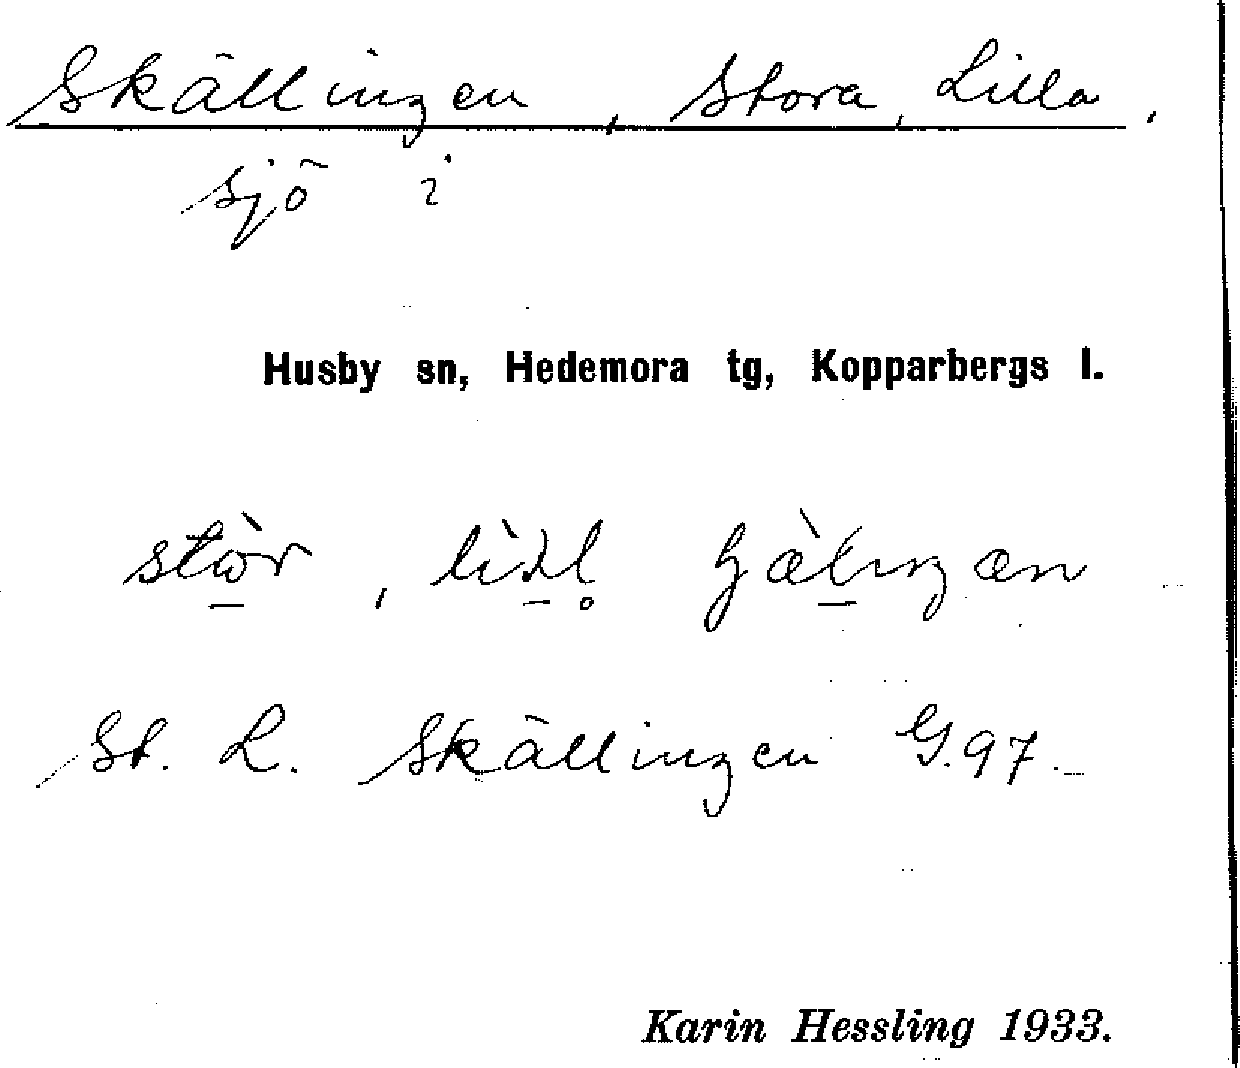 Skällingen, Stora, Lilla.
sjö i
Husby sn, Hedemora tg, Kopparbergs l.
St. L. Skällingen G.97.
Karin Hessling 1933.